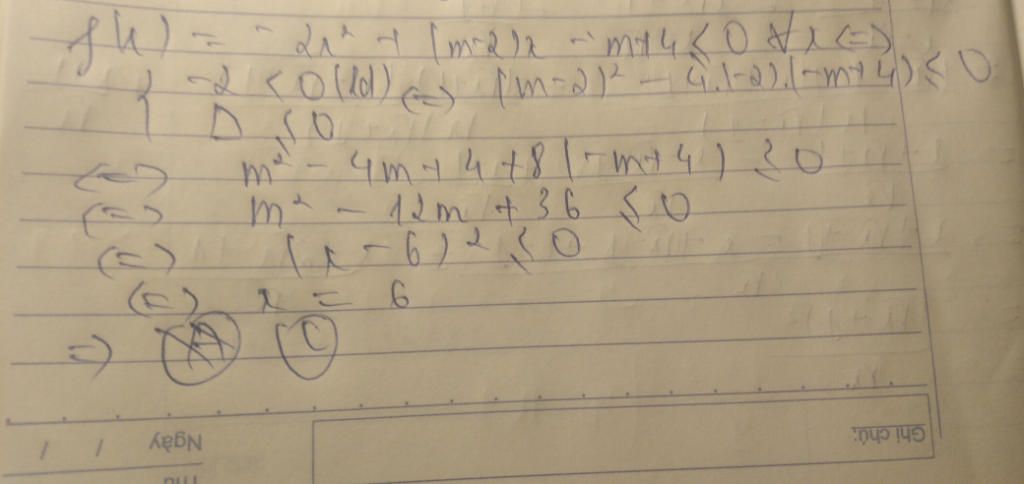 f(x) = -2x² + (m-2)x - m+4 ≤ 0 ∀x <=>
{ -2 < 0 (lđ) <=> (m-2)² - 4.(-2).(-m+4) ≤ 0
Δ ≤ 0
<=> m² - 4m + 4 + 8(-m+4) ≤ 0
<=> m² - 12m + 36 ≤ 0
<=> (x - 6)² ≤ 0
<=> x = 6
=> A C
Ghi chú:
Ngày / /
Thứ